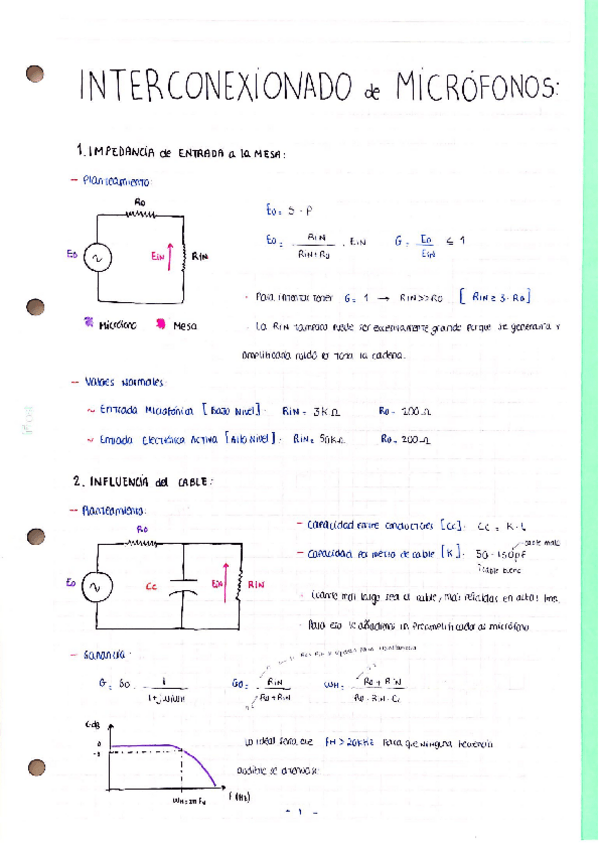 INTERCONEXIONADO de MICRÓFONOS:
1. IMPEDANCIA de ENTRADA a la MESA:
- Planteamiento:
Ro
Eo = S · P
Eo = RiN / RiN+Ro · EiN G = Eo / EiN ≤ 1
Eo
EiN
RiN
· Para intentar tener G = 1 → RiN >> Ro [ RiN ≥ 3 · Ro ]
Micrófono
Mesa
· La RiN tampoco puede ser excesivamente grande porque se generaría y
amplificaría ruido en toda la cadena.
- Valores Normales:
~ Entrada Microfónica [Bajo Nivel]: RiN = 3KΩ Ro = 200Ω
~ Entrada Electrónica Activa [Alto Nivel]: RiN = 50KΩ Ro = 200Ω
2. INFLUENCIA del CABLE:
- Planteamiento:
Ro
- Capacidad entre conductores [Cc]: Cc = K · L
- Capacidad por metro de cable [K]: 50 - 150pF
cable malo
cable bueno
Eo
Cc
EiN
RiN
· Cuanto más largo sea el cable, más pérdidas en altas frec.
· Para eso le añadimos un Preamplificador al micrófono
- Ganancia:
G = Go · 1 / 1+jω/ωH
Go = RiN / Ro+RiN
ωH = Ro + RiN / Ro · RiN · Cc
GdB
0
-3
Lo ideal sería que fH > 20KHz para que ninguna frecuencia
audible se atenuase.
F (Hz)
- 1 -